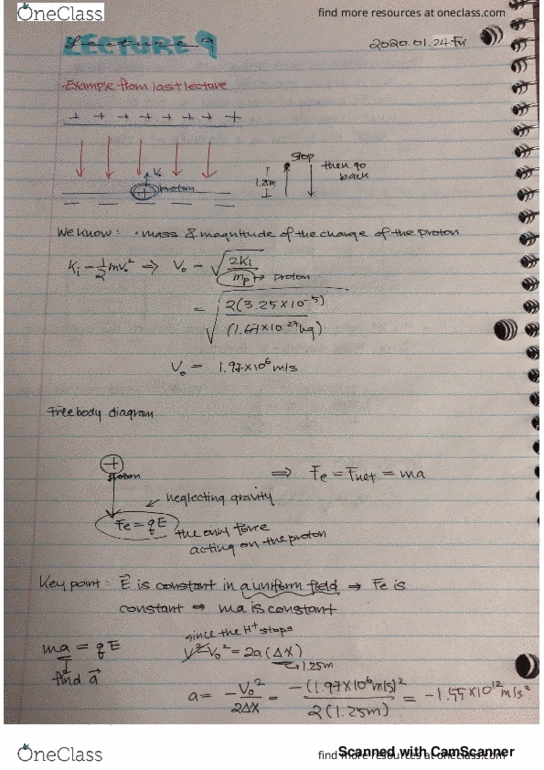 OneClass
find more resources at oneclass.com
LECTURE 9
2020.01.24.Fri
Example from last lecture
+ + + + + + + +
V
+ proton
1.25m
Stop
then go
back
We know: · mass & magnitude of the charge of the proton
Ki = 1/2 mv₀² ⇒ V₀ = √(2Ki / mp) → proton
= √(2(3.25×10⁻¹⁵) / (1.67×10⁻²⁷kg))
V₀ = 1.97×10⁶ m/s
Free body diagram
+
proton
⇒ Fe = Fnet = ma
neglecting gravity
Fe = qE
the only force
acting on the proton
Key point: E⃗ is constant in a uniform field → Fe is
constant ⇒ ma is constant
since the H⁺ stops
ma = qE
V² - V₀² = 2a(Δx)
↳ 1.25m
find a⃗
a = -V₀² / 2Δx = -(1.97×10⁶m/s)² / 2(1.25m) = -1.55×10¹² m/s²
OneClass
find more resources at oneclass.com
Scanned with CamScanner